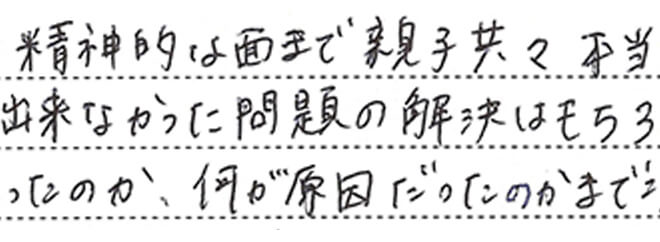 精神的な面まで親子共々本当
出来なかった問題の解決はもちろ
ったのか、何が原因だったのかまでに